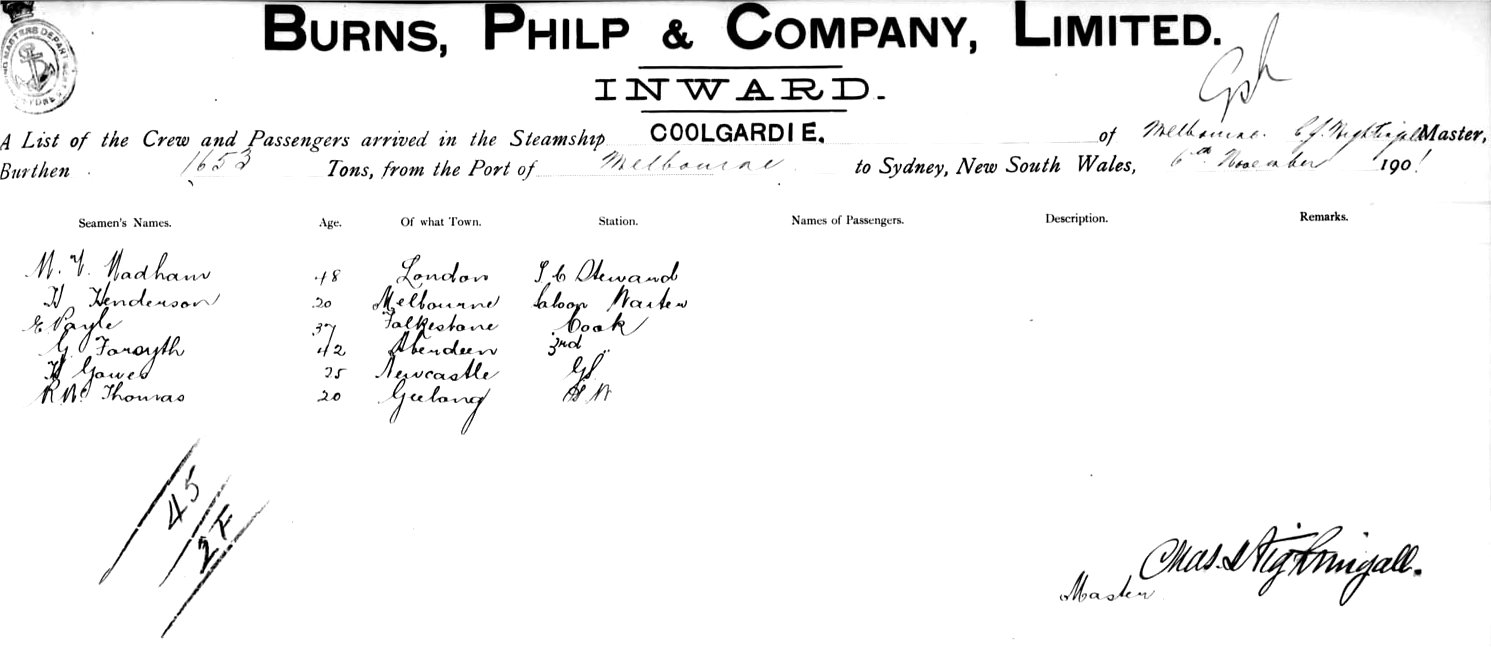 BURNS, PHILP & COMPANY, LIMITED.
INWARD.
A List of the Crew and Passengers arrived in the Steamship COOLGARDIE, of Melbourne. C.J. Nightingall Master,
Burthen 1653 Tons, from the Port of Melbourne to Sydney, New South Wales, 6th November 1901
Seamen's Names. Age. Of what Town. Station. Names of Passengers. Description. Remarks.
48 London Steward
H Henderson 20 Melbourne Saloon Waiter
E 37 Folkestone Cook
G. Forsyth 42 Aberdeen 3rd "
H 25 Newcastle GS
Thomas 20 Geelong
45
2F
Chas. Nightingall.
Master